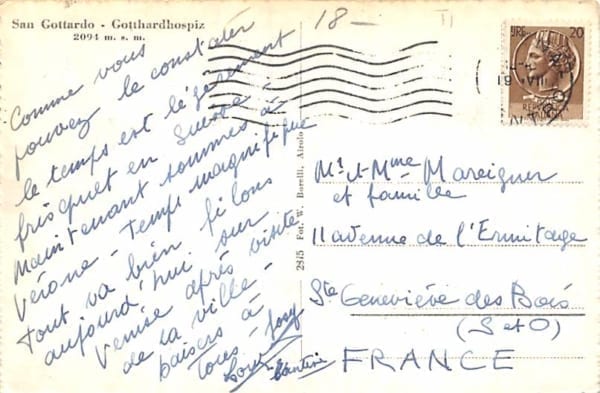 San Gottardo - Gotthardhospiz
2094 m. s. m.
18-
Comme vous
pouvez le constater
le temps est légèrement
frisquet en Suisse -
Maintenant sommes à
Vérone - Temps magnifique
Tout va bien filons
aujourd'hui sur
Venise après visite
de la ville -
baisers à
tous -
2845 Fot. W. Borelli, Airolo
LIRE 20
VIII 61
Mr et Mme Mareigner
et famille
11 avenue de l'Ermitage
Ste Geneviève des Bois
(S et O)
FRANCE